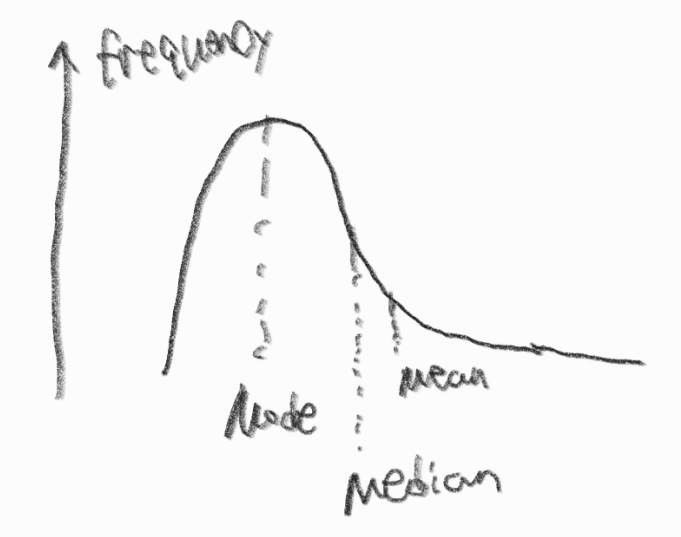 frequency
Mode
Mean
Median